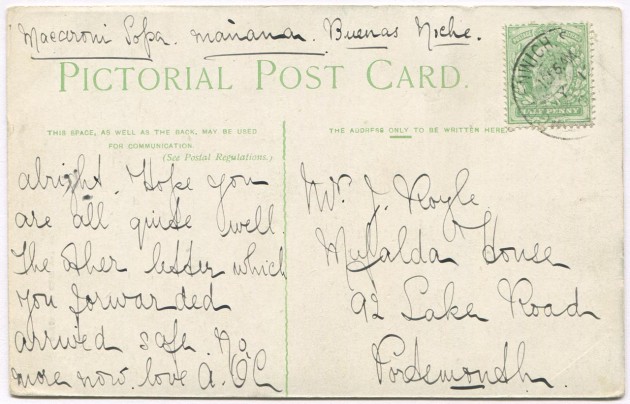 Macaroni Sopa. Mañana. Buenas Noche.
PICTORIAL POST CARD.
THIS SPACE, AS WELL AS THE BACK, MAY BE USED
FOR COMMUNICATION.
(See Postal Regulations.)
alright. Hope you
are all quite well.
The other letter which
you forwarded
arrived safe. No
more now. love A.
THE ADDRESS ONLY TO BE WRITTEN HERE.
Mr. J. Hoyle.
House
92 Lake Road
Portsmouth.